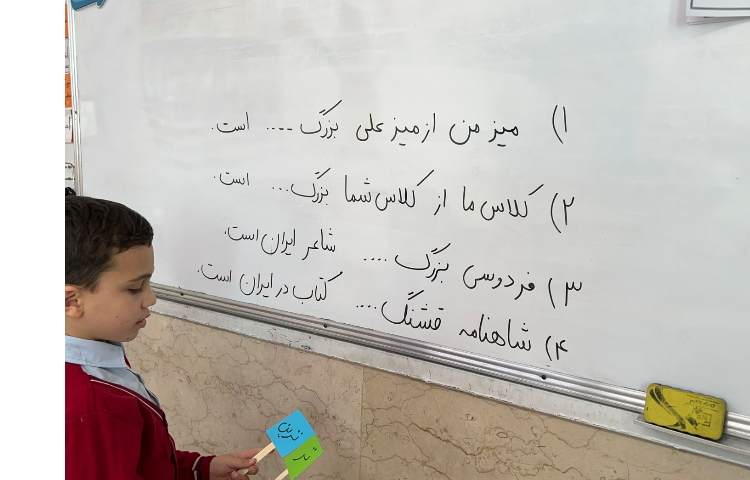 ۱) میز من از میز علی بزرگ ---- است.
۲) کلاس ما از کلاس شما بزرگ... است.
۳) فردوسی بزرگ .... شاعر ایران است.
۴) شاهنامه قشنگ .... کتاب در ایران است.
ترین
تر